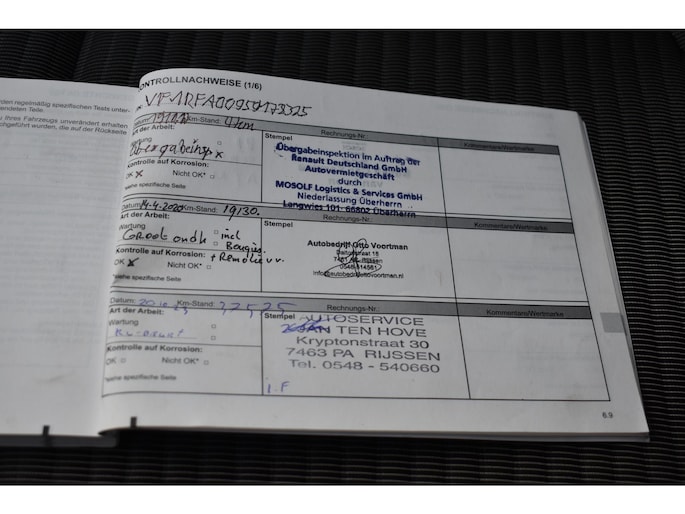 KONTROLLNACHWEISE (1/6)
rden regelmäßig spezifischen Tests unter-
wendeten Teile.
u Ihres Fahrzeugs unverändert erhalten
chgeführt wurden, die auf der Rückseite
Datum: Km-Stand: 47km
Rechnungs-Nr.:
Kommentare/Wertmarke
Art der Arbeit:
Stempel
Übergabeinsp x
Übergabeinspektion im Auftrag der
Renault Deutschland GmbH
Autovermietgeschäft
durch
MOSOLF Logistics & Services GmbH
Niederlassung Überherrn
Langwies 101 66802 Überherrn
Kontrolle auf Korrosion:
OK x Nicht OK*
*siehe spezifische Seite
Datum: 14-4-2020 Km-Stand: 19130.
Rechnungs-Nr.:
Kommentare/Wertmarke
Art der Arbeit:
Stempel
Wartung incl
Groot ondh Bougies
+ Remolie vv.
Autobedrijf Otto Voortman
info@autobedrijfottovoortman.nl
Kontrolle auf Korrosion:
OK x Nicht OK*
*siehe spezifische Seite
Datum: Km-Stand:
Rechnungs-Nr.:
Kommentare/Wertmarke
Art der Arbeit:
Stempel
Wartung
AUTOSERVICE
JAN TEN HOVE
Kryptonstraat 30
7463 PA RIJSSEN
Tel. 0548 - 540660
Kontrolle auf Korrosion:
OK Nicht OK*
*siehe spezifische Seite
6.9